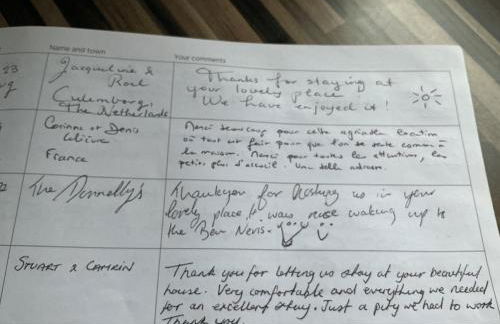 Name and town
Your comments
23
Jacqueline &
Roel
Culemborg,
The Netherlands
Thanks for staying at
your lovely place
We have enjoyed it!
Corinne et Denis
France
Merci beaucoup pour cette agréable location
où tout est fait pour que l'on se sente comme à
la maison. Merci pour toutes les attentions, les
petits plus d'accueil. Une belle adresse.
The Donnelly's
Thankyou for hosting us in your
lovely place, it was nice waking up to
the Ben Nevis.
STUART & CAMRIN
Thank you for letting us stay at your beautiful
house. Very comfortable and everything we needed
for an excellent stay. Just a pity we had to work
Thank you.